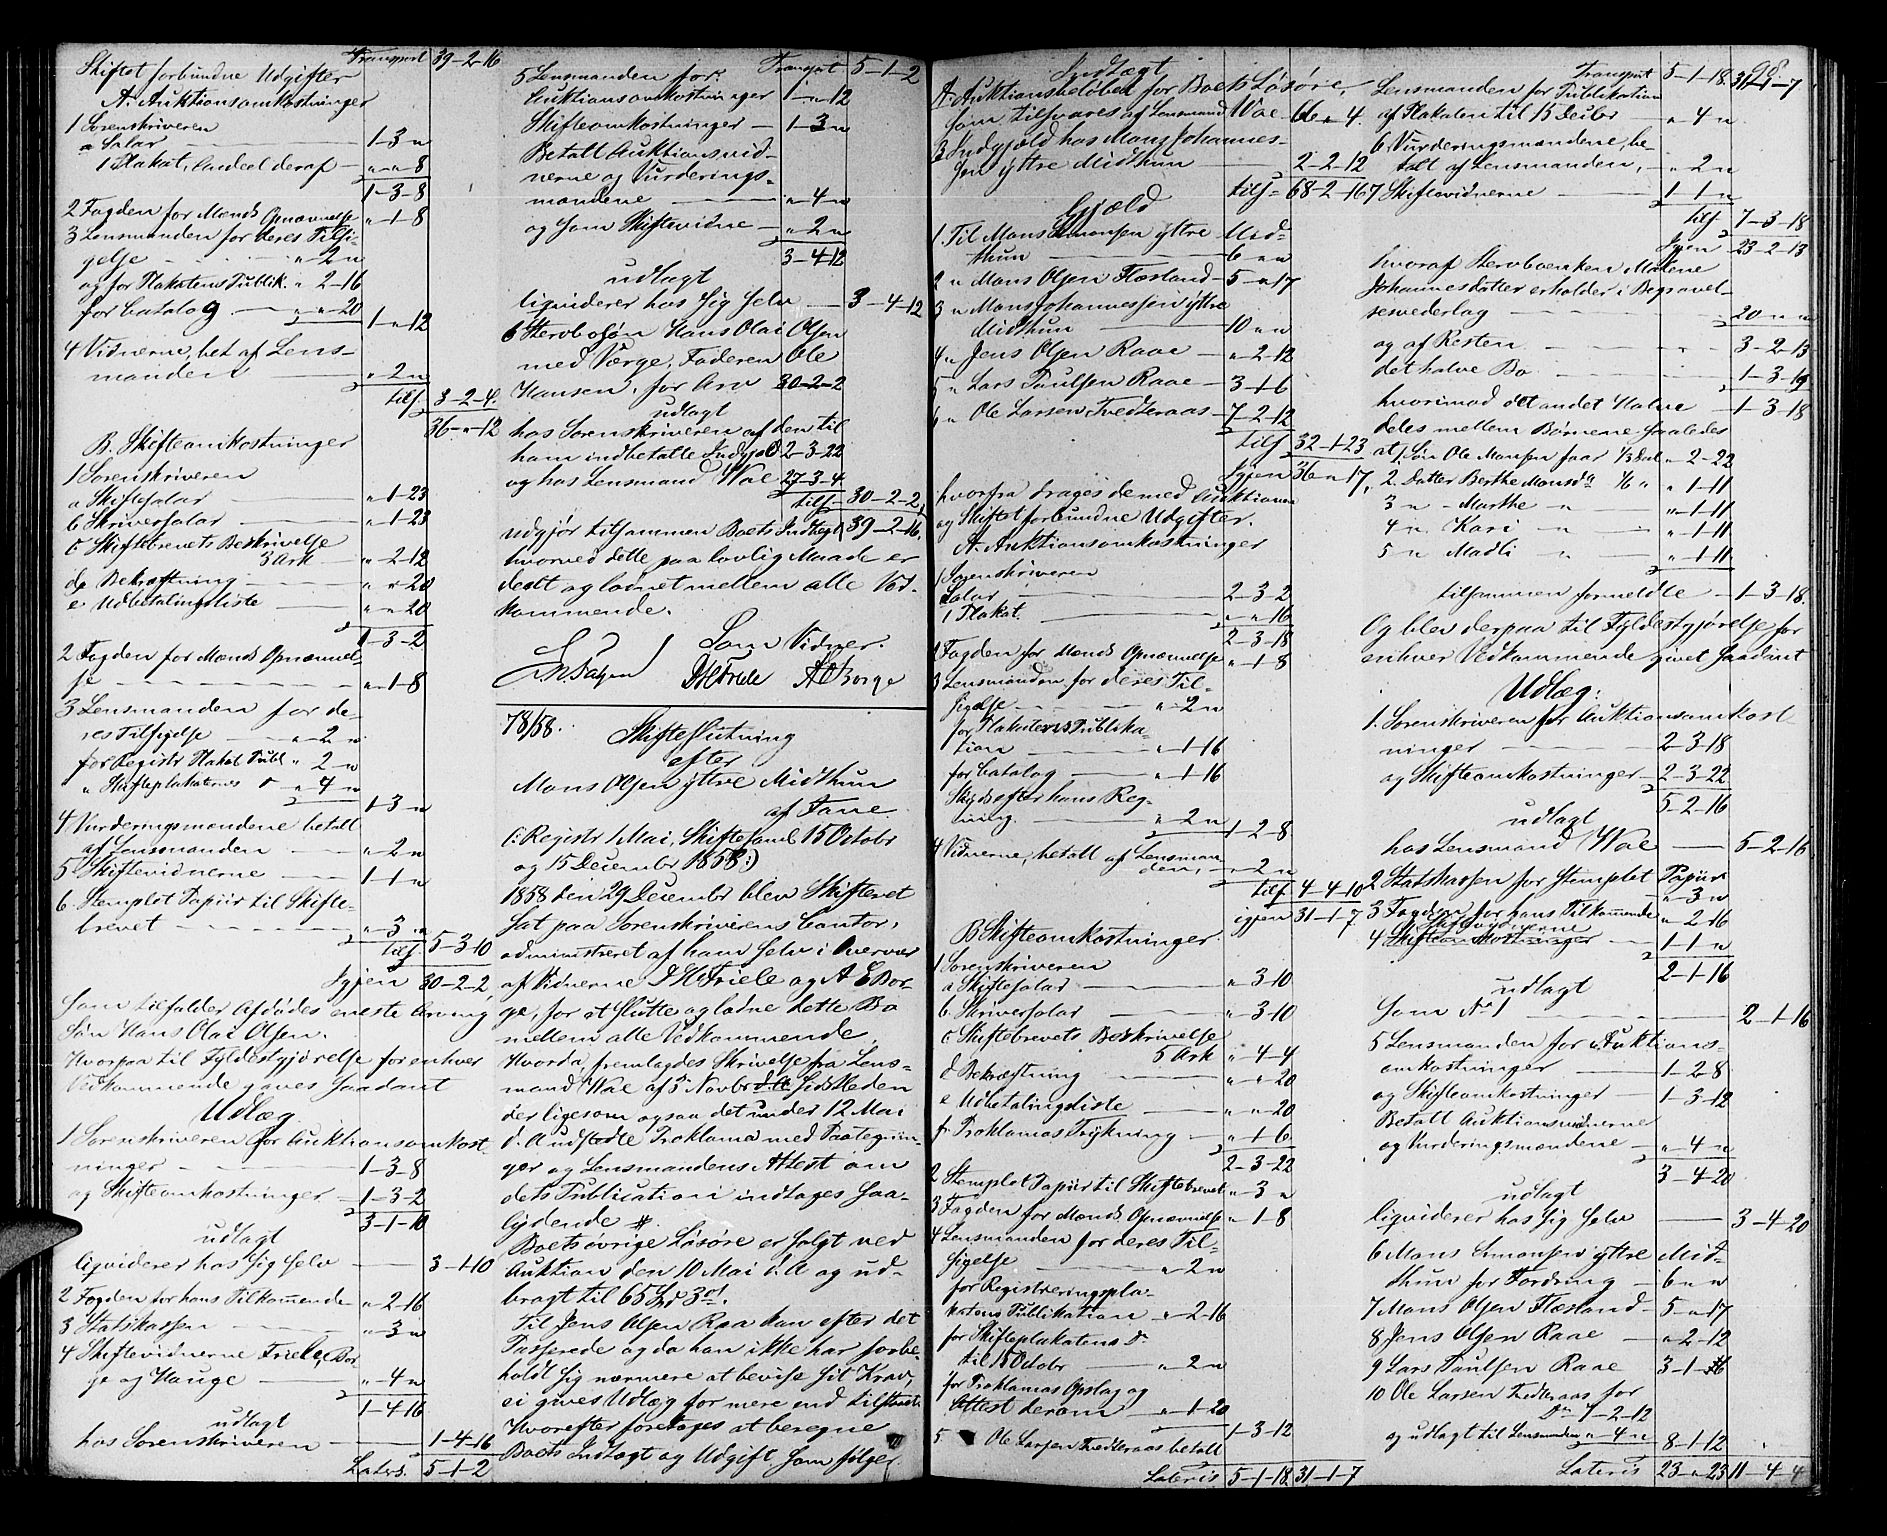 Transport 39-2-16
Skiftet forbundne Udgifter
A. Auktionsomkostninger
1 Sorenskriveren
a Salar 1-3-"
1 Plakat, Andeel deraf "-"-8
1-3-8
2 Fogden for Mænds Opnævnelse "-1-8
3 Lensmanden for deres Tilsi-
gelse "-2-"
og for Plakatens Publik. "-2-16
for Catalog "-"-20
1-"-12
4 Vidnerne, bet. af Lens-
manden "-2-"
tils. 3-2-4.
36-"-12
B. Skifteomkostninger
1 Sorenskriveren
a Skiftesalar "-1-23
b Skriversalar "-1-23
c Skiftebrevets Beskrivelse
3 Ark "-2-12
d Bekræftning "-"-20
e Udbetalingsliste "-"-20
1-3-2
2 Fogden for Mænds Opnævnel-
se "-1-8
3 Lensmanden for de-
res Tilsigelse "-2-"
for Registr. Plakat. Publ. "-2-"
" Skifteplakatens "-4-"
1-3-"
4 Vurderingsmændene betalt
af Lensmanden "-2-"
5 Skiftevidnerne 1-1-"
6 Stemplet Papiir til Skifte-
brevet "-3-"
tils. 5-3-10
Igjen 30-2-2,
Som tilfalder Afdødes eneste Arving
Søn Hans Olai Olsen.
Hvorpaa til Fyldestgjørelse for enhver
Vedkommende gaves saadant
Udlæg
1 Sorenskriveren for Auktionsomkost-
ninger 1-3-8
og Skifteomkostninger 1-3-2
3-1-10
udlagt
liqviderer hos sig selv 3-1-10
2 Fogden for hans Tilkommende "-2-16
3 Statskassen "-3-"
4 Skiftevidnerne Friele, Bor-
ge og Hauge "-4-"
1-4-16
udlagt
hos Sorenskriveren 1-4-16
Lateris. 5-1-2
Transport 5-1-2
5 Lensmanden for:
Auktionsomkostninger 1-"-12
Skifteomkostninger 1-3-"
Betalt Auktionsvid-
nerne og Vurderings-
mændene "-4-"
og som Skiftevidne "-2-"
3-4-12
udlagt
liqviderer hos sig selv 3-4-12
6 Stervbosøn Hans Olai Olsen
med Værge, Faderen Ole
Hansen, for Arv 30-2-2
udlagt
hos Sorenskriveren af den til
ham indbetalte Indgjeld 2-3-22
og hos Lensmand Wae 27-3-4
tils. 30-2-2,
udgjør tilsammen Boets Indtægt 39-2-16,
hvorved dette paa lovlig Maade er
deelt og lodnet mellem alle Ved-
kommende.
Som Vidner.
HFriele AEBorge
78/58. Skifteslutning
efter
Mons Olsen yttre Midthun
af Fane.
(: Registr. 1 Mai, Skiftesaml. 15 Octobr
og 15 December 1858:)
1858 den 29 December blev Skifteret
sat paa Sorenskriverens Contor,
administreret af ham selv i Overvær
af Vidnerne H Friele og A E Bor-
ge, for at slutte og lodne dette Bo
mellem alle Vedkommende.
Hvorda, fremlagdes Skrivelse fra Lens-
mand Wae af 3 Novbr sidstleden
der ligesom ogsaa det under 12 Mai
d. A. udstedte Proklama med Paategnin-
ger og Lensmandens Attest om
dets Publication indtages saa-
lydende #.
Boets øvrige Løsøre er solgt ved
Auktion den 10 Mai d. A og ud-
bragt til 65 Spd 3 ort.
Til Jens Olsen Raa kan efter det
Passerede og da han ikke har forbe-
holdt sig nærmere at bevise sit Krav,
ei gives Udlæg for mere end tilstaaet.
Hvorefter foretoges at beregne
Boets Indtægt og Udgift som følger
Indtægt
A. Auktionsbeløbet for Boets Løsøre,
som tilsvares af Lensmand Wae 66-"-4.
B Indgjeld hos Mons Johannes-
sen yttre Midthun 2-2-12
tils. 68-2-16
Gjæld
1. Til Mons Simonsen yttre Mid-
thun 6-"-"
2 " Mons Olsen Flæsland 5-"-17
3 " Mons Johannessen yttre
Midthun 10-"-"
4 " Jens Olsen Raae "-2-12
5 " Lars Paulsen Raae 3-1-6
6 " Ole Larsen Tvedteraas 7-2-12
tils. 32-1-23
Igjen 36-"-17,
hvorfra drages de med Auktionen
og Skiftet forbundne Udgifter.
A. Auktionsomkostninger
1 Sorenskriveren
Salar 2-3-2
1 Plakat. "-"-16
2-3-18
2 Fogden for Mænds Opnævnelse "-1-8
3 Lensmanden for deres Til-
sigelse "-2-"
for Plakatens Publika-
tion "-1-16
for Catalog "-1-16
Skyds efter hans Reg-
ning. "-2-"
1-2-8
4 Vidnerne, betalt af Lensman-
den, "-2-"
tils. 4-4-10
igjen 31-1-7
B Skifteomkostninger
1 Sorenskriveren
a Skiftesalar "-3-10
b Skriversalar "-3-10
c Skiftebrevets Beskrivelse
5 Ark "-4-4
d Bekræftning "-"-20
e Udbetalingsliste "-"-20
f Proklamas Trykning "-1-6
2-3-22
2 Stemplet Papiir til Skiftebrevet "-3-"
3 Fogden for Mænds Opnævnelse "-1-8
4 Lensmanden for deres Til-
sigelse "-2-"
for Registreringspla-
katens Publikation "-2-16
for Skifteplakatens Do
til 15 Octobr "-2-"
for Proklamas Opslag og
Attest derom "-1-20
1-3-12
5 Ole Larsen Tvedteraas betalt
Lateris 5-1-18 31-1-7
98
Transport 5-1-18 31-1-7
Lensmanden for Publikation
af Plakaten til 15 Decbr "-4-"
6 Vurderingsmændene, be-
talt af Lensmanden, "-2-"
7 Skiftevidnerne 1-1-"
tils 7-3-18
Igjen 23-2-13
hvoraf Stervboenken Malene
Johannesdatter erholder i Begravel-
sesvederlag 20-"-"
og af Resten 3-2-13
det halve Bo 1-3-19
hvorimod det andet Halve 1-3-18
deles mellem Børnene saaledes
at 1. Søn Ole Monsen faar 1/3 Deel "-2-22
2. Datter Berthe Monsdr 1/6 " "-1-11
3 " - Marthe " "-1-11
4 " Kari " "-1-11
5 " Madli " "-1-11
tilsammen formeldte 1-3-18.
Og blev derpaa til Fyldestgjørelse for
enhver Vedkommende givet saadant
Udlæg:
1. Sorenskriveren for Auktionsomkost-
ninger 2-3-18
og Skifteomkostninger 2-3-22
5-2-16
udlagt
hos Lensmand Wae 5-2-16
2 Statskassen for stemplet Papiir
"-3-"
3 Fogden for hans Tilkommende "-2-16
Skiftevidnerne
4 Skifteomkostninger 1-1-"
2-1-16
udlagt
som No 1 2-1-16
5 Lensmanden for Auktions-
omkostninger 1-2-8
og Skifteomkostninger 1-3-12
Betalt Auktionsvidnerne
og Vurderingsmændene "-4-"
3-4-20
udlagt
liqviderer hos sig selv 3-4-20
6 Mons Simonsen yttre Mid-
thun for Fordring 6-"-"
7 Mons Olsen Flæsland 5-"-17
8 Jens Olsen Raae "-2-12
9 Lars Paulsen Raae 3-1-6
10 Ole Larsen Tvedteraas for
Do 7-2-12
og udlagt til Lensmanden "-4-"
8-1-12
Lateris 23-"-23 11-4-4